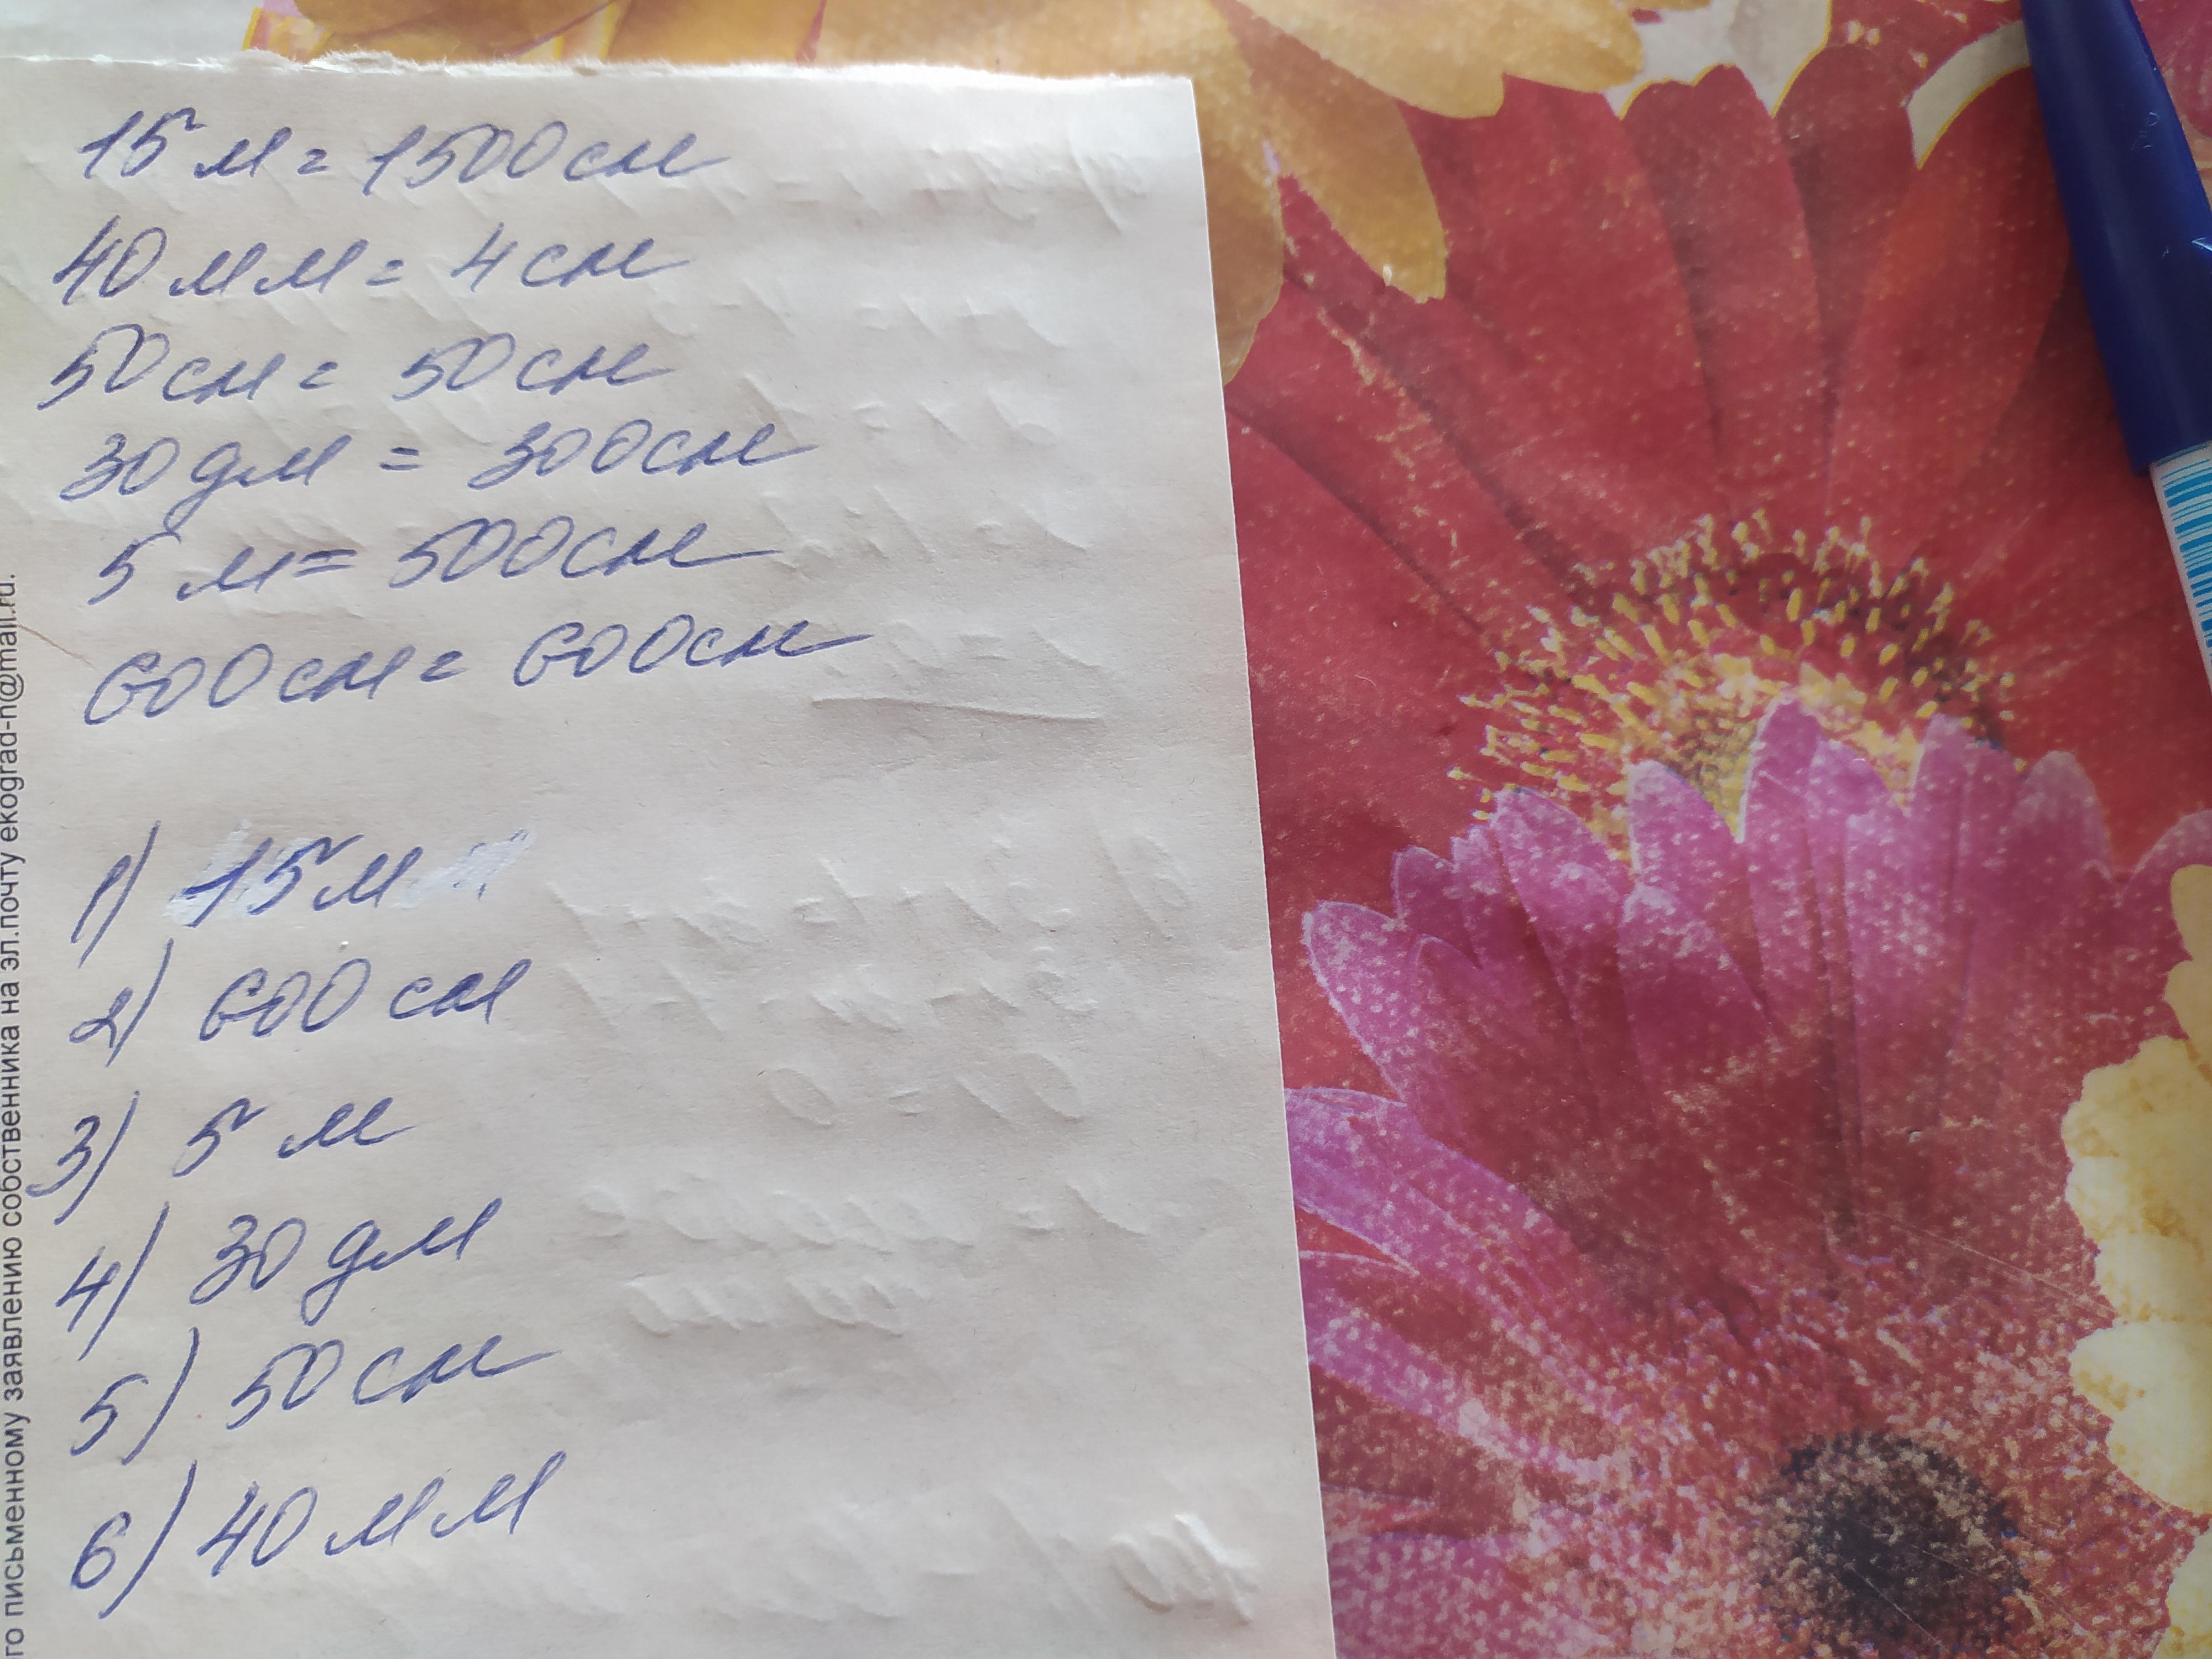 15 м = 1500 см
40 мм = 4 см
50 см = 50 см
30 дм = 300 см
5 м = 500 см
600 см = 600 см
1) 15 м
2) 600 см
3) 5 м
4) 30 дм
5) 50 см
6) 40 мм
го письменному заявлению собственника на эл.почту ekograd-n@mail.ru.